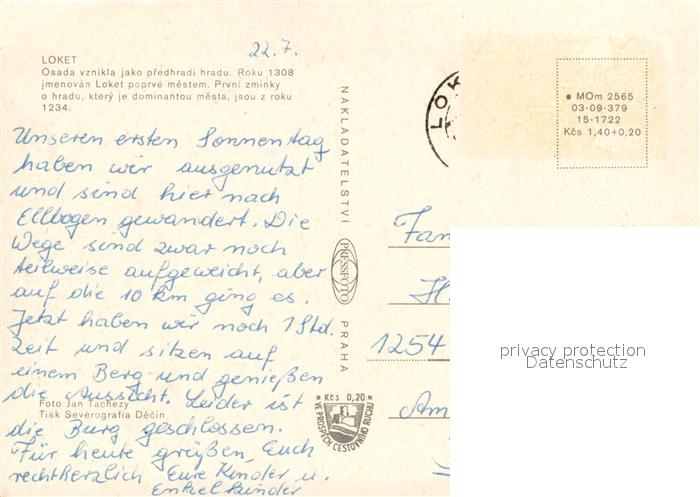 22.7.
LOKET
Osada vznikla jako předhradí hradu. Roku 1308
jmenován Loket poprvé městem. První zmínky
o hradu, který je dominantou města, jsou z roku
1234.
Unseren ersten Sonnentag
haben wir ausgenutzt
und sind hier nach
Ellbogen gewandert. Die
Wege sind zwar noch
teilweise aufgeweicht, aber
auf die 10 km ging es.
Jetzt haben wir noch 1 Std.
Zeit und sitzen auf
einem Berg und genießen
die Aussicht. Leider ist
die Burg geschlossen.
Für heute grüßen Euch
rechtherzlich Eure Kinder u.
Enkelkinder
Foto Jan Tachezy
Tisk Severografia Děčín
NAKLADATELSTVÍ
PRESSFOTO
PRAHA
Kčs 0,20
VE PROSPĚCH CESTOVNÍHO RUCHU
LOK
MOm 2565
03-09-379
15-1722
Kčs 1,40+0,20
Fam
H
1254
Am
privacy protection
Datenschutz